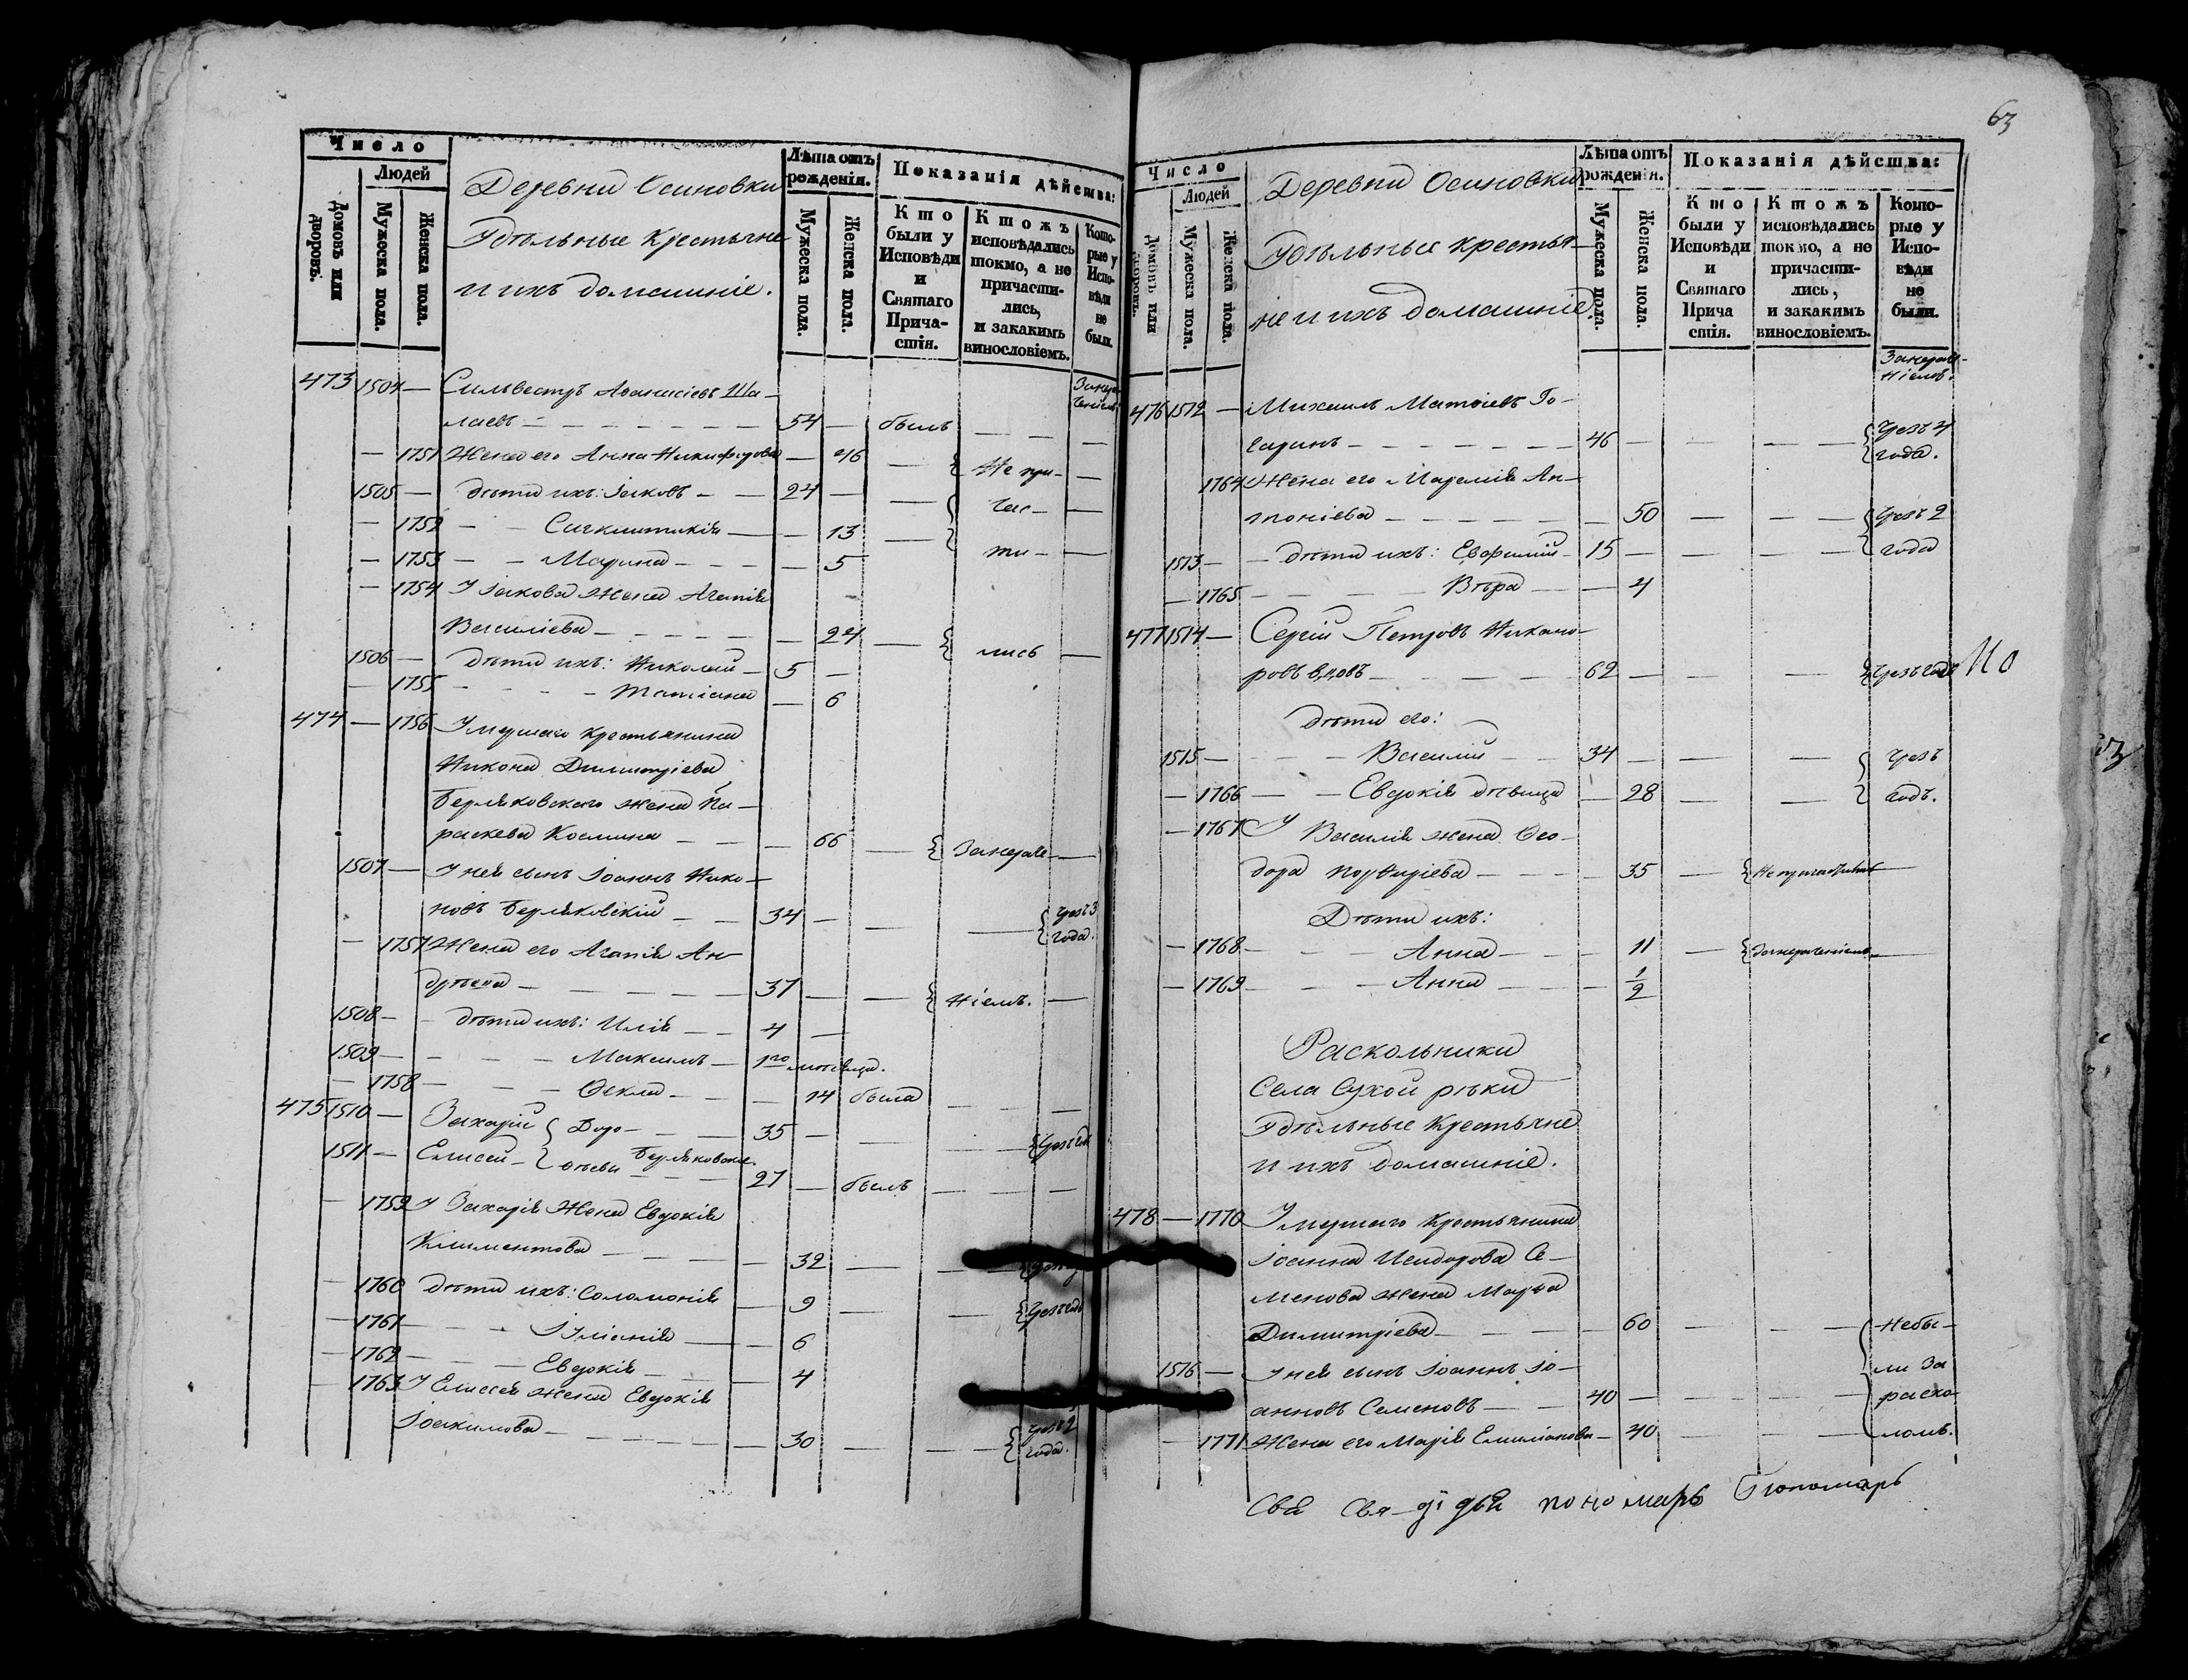 Число
Людей
Домовъ или дворовъ.
Мужеска пола.
Женска пола.
Деревни Осиновки
Удѣльные крестьяне
и ихъ домашніе.
Лѣта отъ рожденія.
Мужеска пола.
Женска пола.
Показанія дѣйства:
Кто были у Исповѣди и Святаго Причастія.
Ктожъ исповѣдались токмо, а не причастились, и закакимъ винословіемъ.
Которые у Исповѣди не были.
473 1504 — Сильвестръ Аѳанасіевъ Ша-
лаевъ — 54 — былъ — —
— 1751 Жена его Анна Никифорова — 46 — { Не при- —
1505 — дѣти ихъ: Іаковъ — 24 — — { час- —
— 1752 — Сигклитикія — 13 — { ти- —
— 1753 — Марина — 5
— 1754 У Іакова жена Агапія
Василіева — 24 — { лись —
1506 — дѣти ихъ: Николай — 5 —
— 1755 — Татіана — 6
474 — 1756 Умершаго крестьянина
Никона Димитріева
Беряковскаго жена Па-
раскева Космина — 66 — { Занераче- —
1507 — У нея сынъ Іоаннъ Нико-
новъ Беряковскій — 34 — — — { Чрезъ 3
года.
— 1757 Жена его Агапія Ан-
дреева — 37 — — { ніемъ. —
1508 — дѣти ихъ: Илія — 4 —
1509 — — Максимъ — 1го месяца.
— 1758 — Ѳекла — 14 была — —
475 1510 — Захарій { Доро- — 35 — — {Чрезъ годъ
1511 — Елисей — { ѳеевы Беряковскіе. 27 — былъ — —
1759 У Захарія жена Евдокія
Климентова — 32 — —
— 1760 дѣти ихъ: Соломонія — 9 — — {Чрезъ годъ
— 1761 — Іуліанія — 6
— 1762 — Евдокія — 4
— 1763 У Елисея жена Евдокія
Іоакимова — 30 — — { Чрезъ 2
года.
63
Число
Людей
Домовъ или дворовъ.
Мужеска пола.
Женска пола.
Деревни Осиновки
Удѣльные крестья-
не и ихъ домашніе
Лѣта отъ рожденія.
Мужеска пола.
Женска пола.
Показанія дѣйства:
Кто были у Исповѣди и Святаго Причастія.
Ктожъ исповѣдались токмо, а не причастились, и закакимъ винословіемъ.
Которые у Исповѣди не были.
Занераче-
ніемъ.
476 1512 — Михаилъ Матѳіевъ Го-
гаринъ — 46 — — — { Чрезъ 4
года.
1764 Жена его Мареміа Ан-
тоніева — 50 — — { Чрезъ 2
1513 — дѣти ихъ: Евфимій — 15 — — — { года
— 1765 — Вѣра — 4
477 1514 — Сергій Петровъ Никано-
ровъ — 62 — — — {Чрезъ годъ
но
дѣти его:
1515 — — Василій — 34 — — — { Чрезъ
— 1766 — Евдокія дѣвица — 28 — — { годъ.
— 1767 У Василія жена Ѳео-
дора Порфиріева — 35 — {Не причастилась —
Дѣти ихъ:
— 1768 — Анна — 11 — {Занераченіемъ —
— 1769 — Анна — 1/2
Раскольники
Села Сухой рѣки
Удѣльные Крестьяне
и ихъ домашніе.
478 — 1770 Умершаго крестьянина
Іоанна Исидорова Се-
менова жена Марѳа
Димитріева — 60 — — { Небы-
1516 — У нея сынъ Іоаннъ Іо- ли за
анновъ Семеновъ — 40 — — — { раско-
— 1771 Жена его Марія Емиліанова — 40 — — ломъ.
пономарь Пономарь